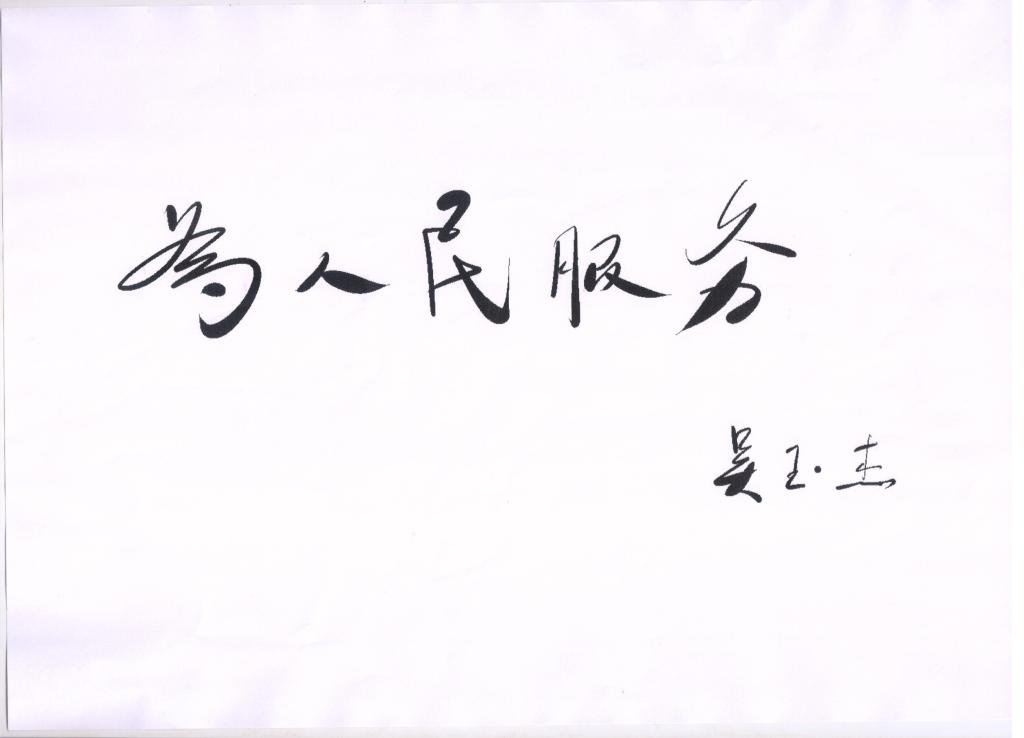 为人民服务
吴玉杰